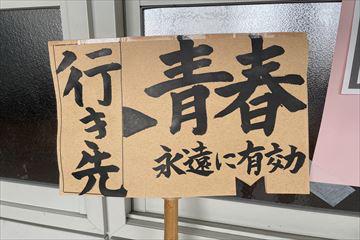 行き先
青春
永遠に有効